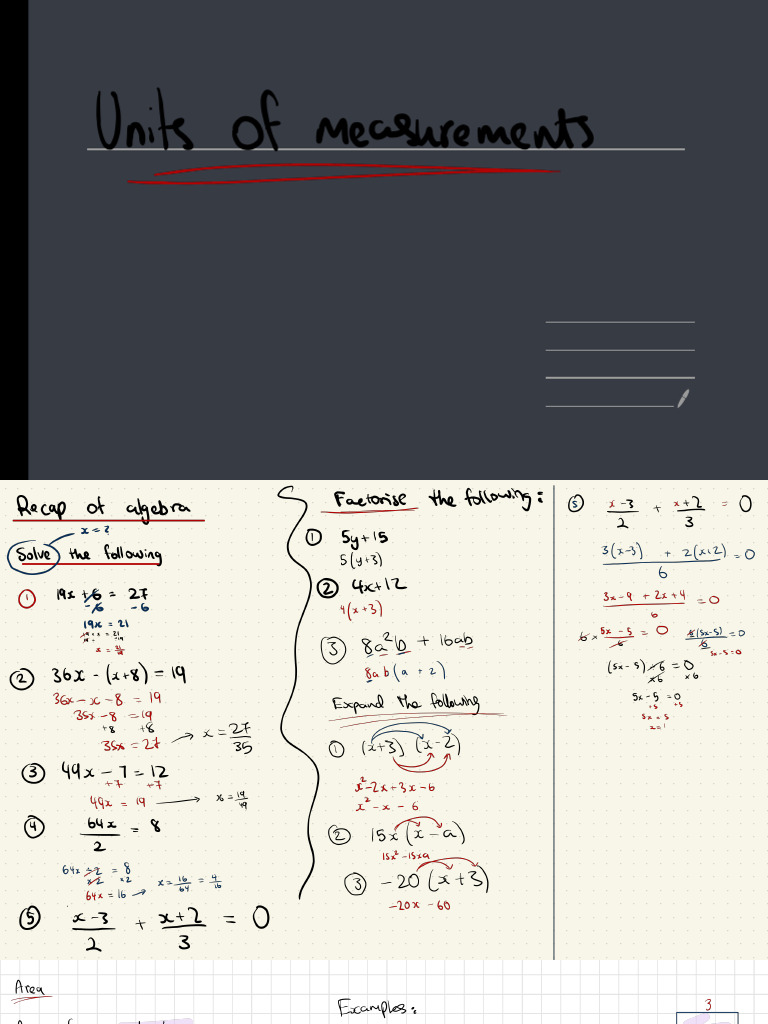 Units of measurements
Recap of algebra
x = ?
Solve the following
① 19x + 6 = 27
- 6 - 6
19x = 21
② 36x - (x+8) = 19
36x - x - 8 = 19
35x - 8 = 19
+8 +8
35x = 27 → x = 27/35
③ 49x - 7 = 12
+7 +7
49x = 19 → x = 19/49
④ 64x/2 = 8
64x ÷ 2 = 8
×2 ×2
64x = 16 → x = 16/64 = 4/16
⑤ x-3/2 + x+2/3 = 0
Factorise the following:
① 5y+15
5(y+3)
② 4x+12
4(x+3)
③ 8a²b + 16ab
8ab(a + 2)
Expand the following
① (x+3)(x-2)
x²-2x+3x-6
x² - x - 6
② 15x(x-a)
15x²-15xa
③ -20(x+3)
-20x - 60
⑤ x-3/2 + x+2/3 = 0
3(x-3) + 2(x+2)/6 = 0
3x-9 + 2x+4/6 = 0
6 × 5x-5/6 = 0
6(5x-5)/6 = 0
5x-5=0
(5x-5) ÷6 = 0
×6 ×6
5x-5 = 0
+5 +5
5x = 5
x = 1
Area
Examples:
3